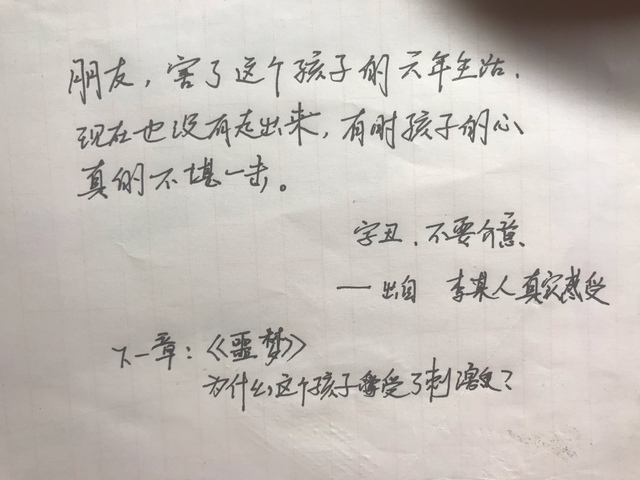 朋友，害了这个孩子的六年生活，
现在也没有走出来，有时孩子的心
真的不堪一击。
字丑，不要介意
——出自 李某人真实感受
下一章：《噩梦》
为什么这个孩子受了刺激？